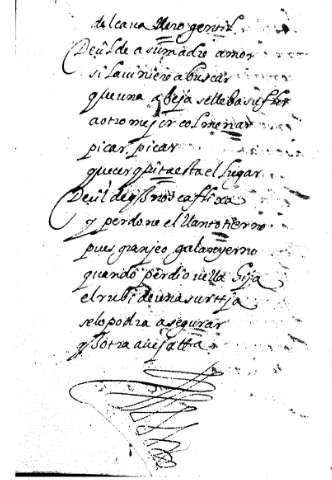 del caua llero gentil
Decilde a su madre amor
si la uiniere a buscar
que una abeja se lleba su flor
a otro mejor colmenar
picar picar
que cerquita esta el lugar
Decilde q no se aflixa
y perdone el llanto tierno
pues granjeo galan yerno
quando perdio bella hija
el rubi de una surtija
se lo podra asegurar
q otra auejatta